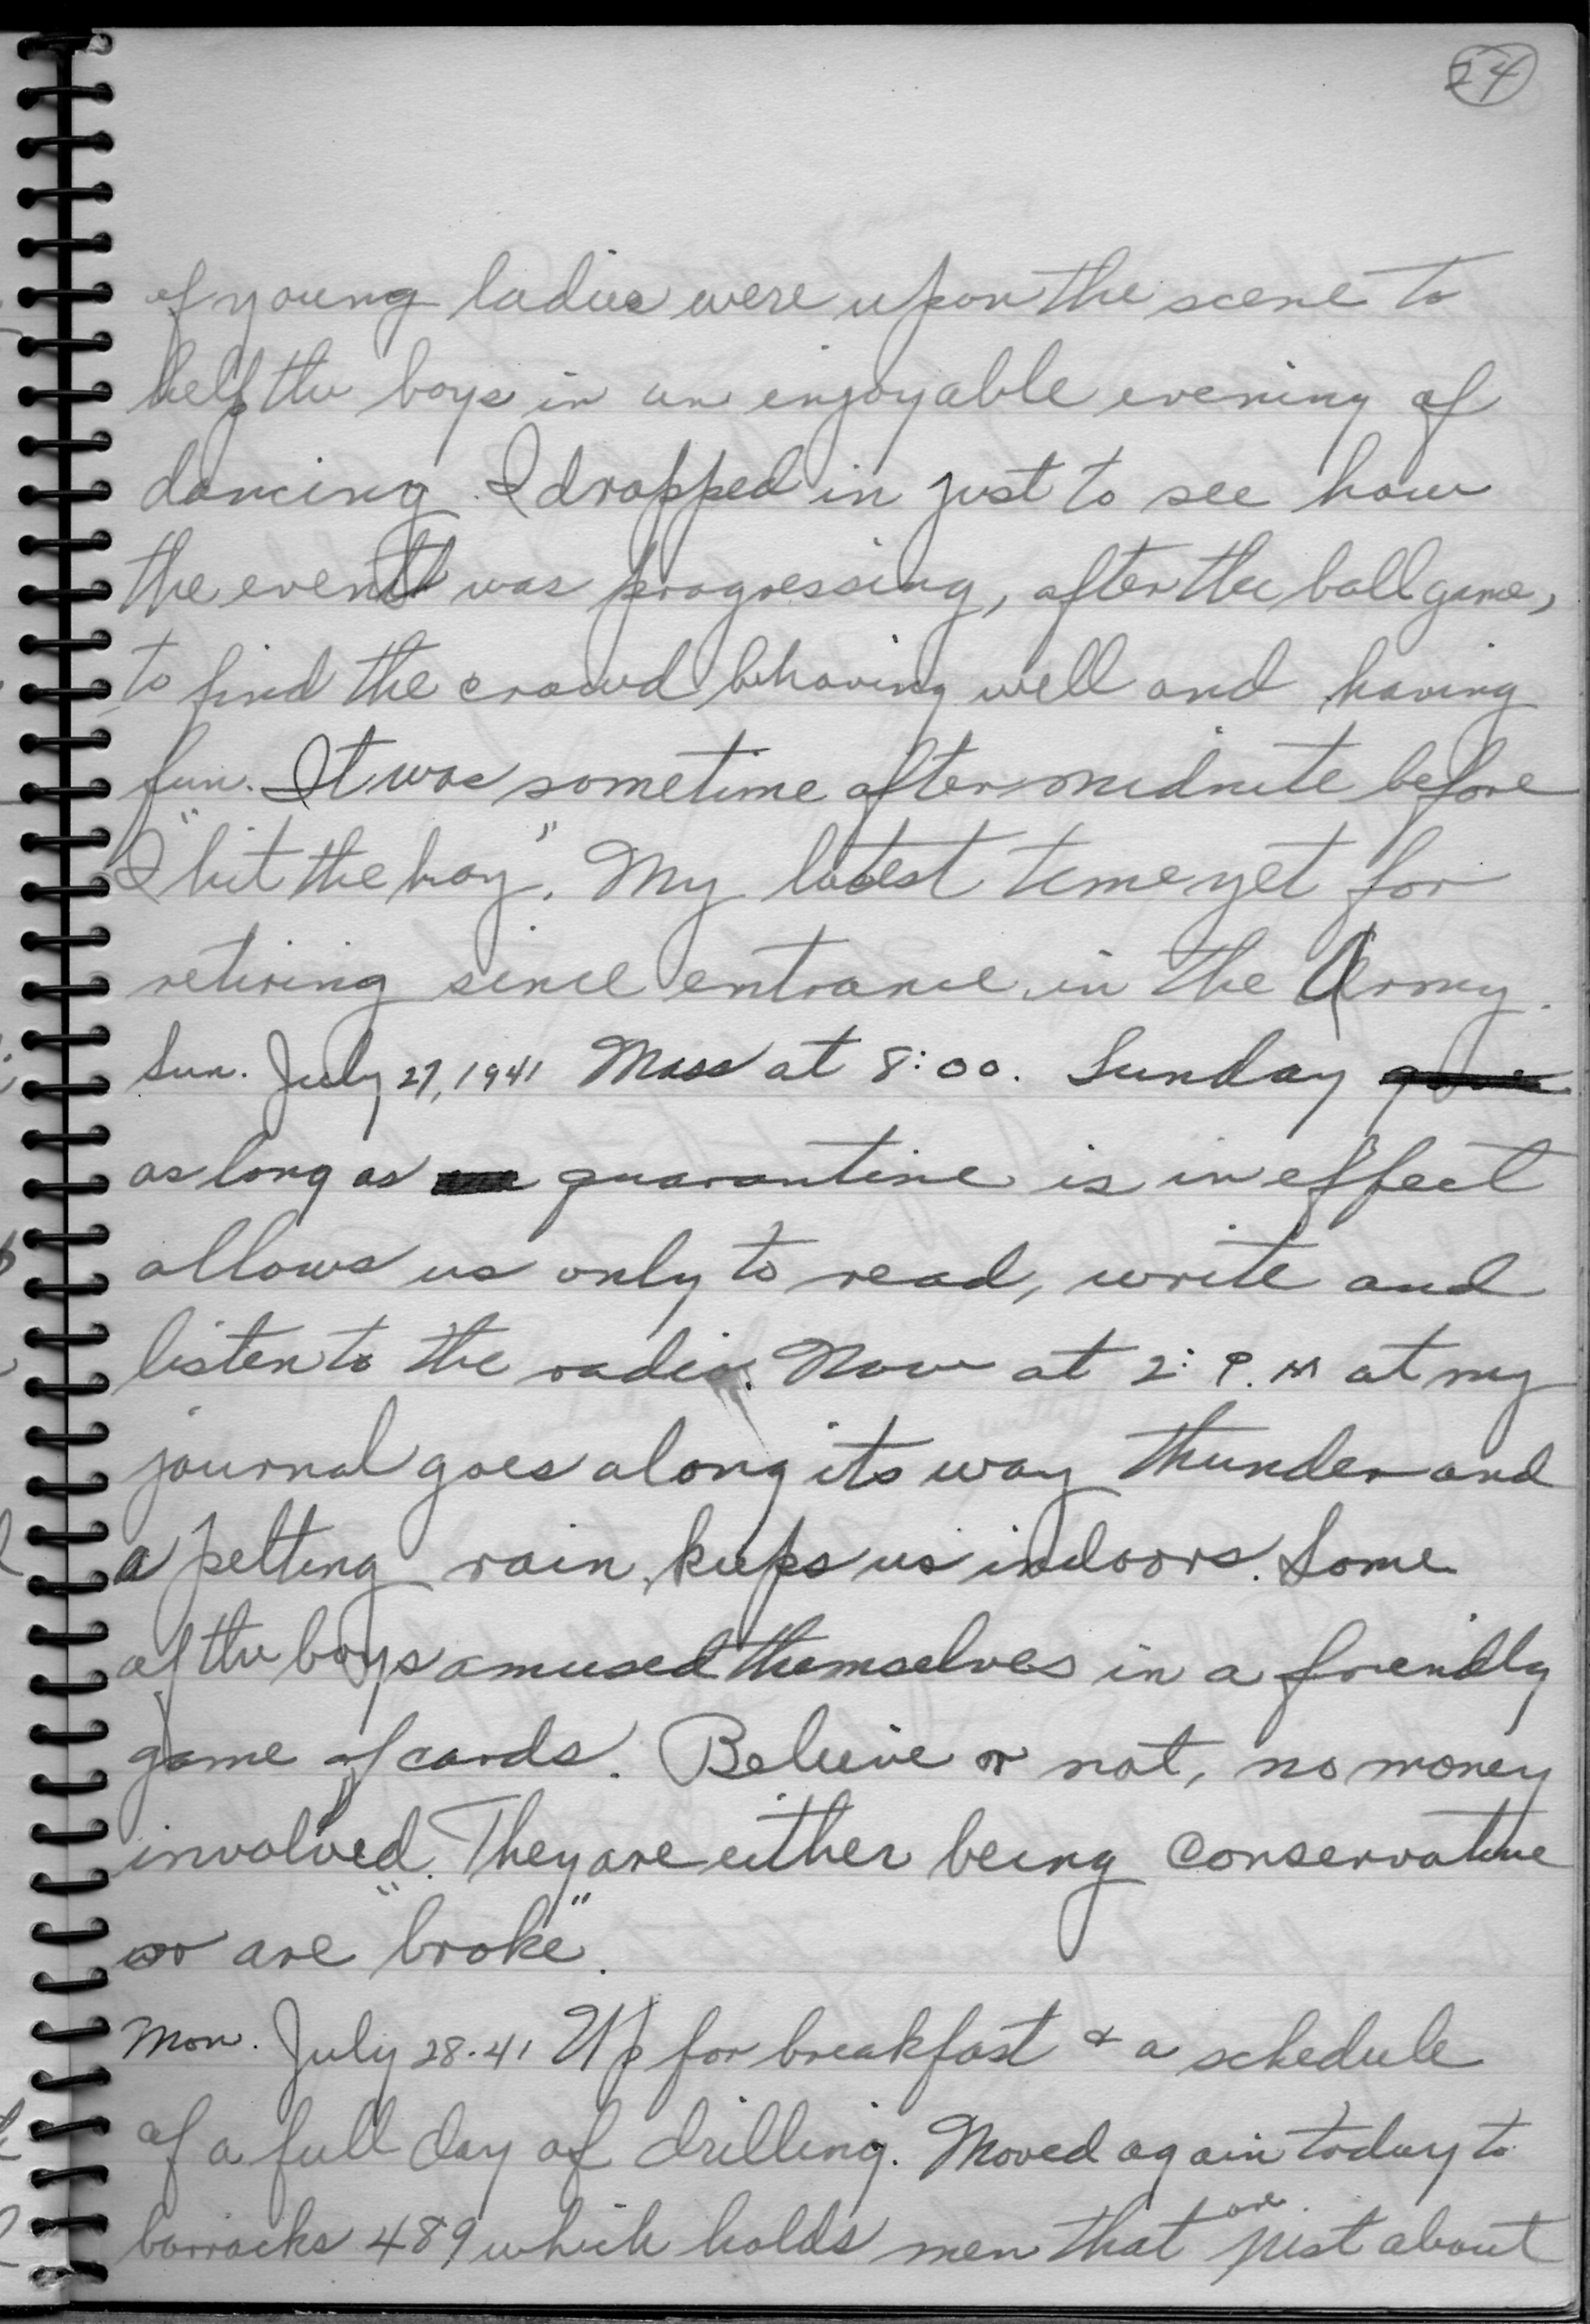 24
of young ladies were upon the scene to
help the boys in an enjoyable evening of
dancing. I dropped in just to see how
the event was progressing, after the ball game,
to find the crowd behaving well and having
fun. It was sometime after midnite before
I "hit the hay". My latest time yet for
retiring since entrance in the Army.
Sun. July 27, 1941 Mass at 8:00. Sunday
as long as quarantine is in effect
allows us only to read, write and
listen to the radio. Now at 2: P.M at my
journal goes along its way thunder and
a pelting rain, keeps us indoors. Some
of the boys amused themselves in a friendly
game of cards. Believe or not, no money
involved. They are either being conservative
or are "broke".
Mon. July 28-41 Up for breakfast & a schedule
of a full day of drilling. Moved again today to
barracks 489 which holds men that are just about